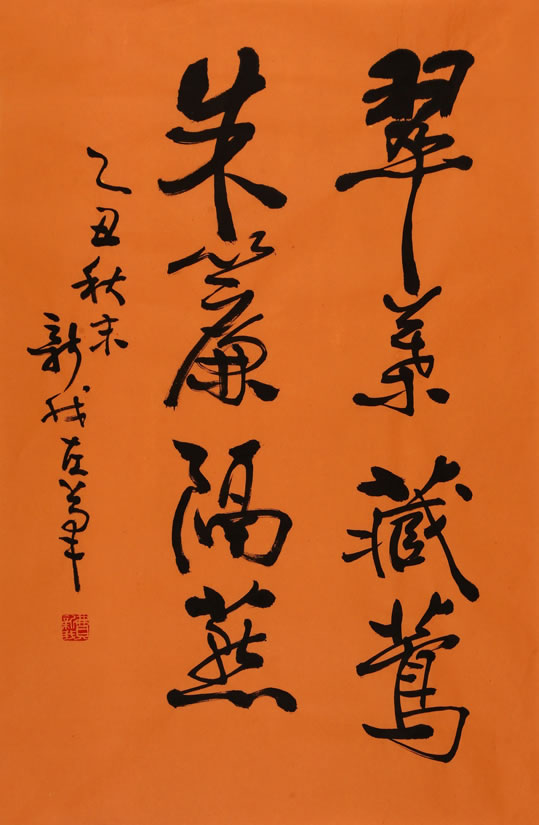 翠葉藏鶯
朱簾隔燕
乙丑秋末
新我左筆